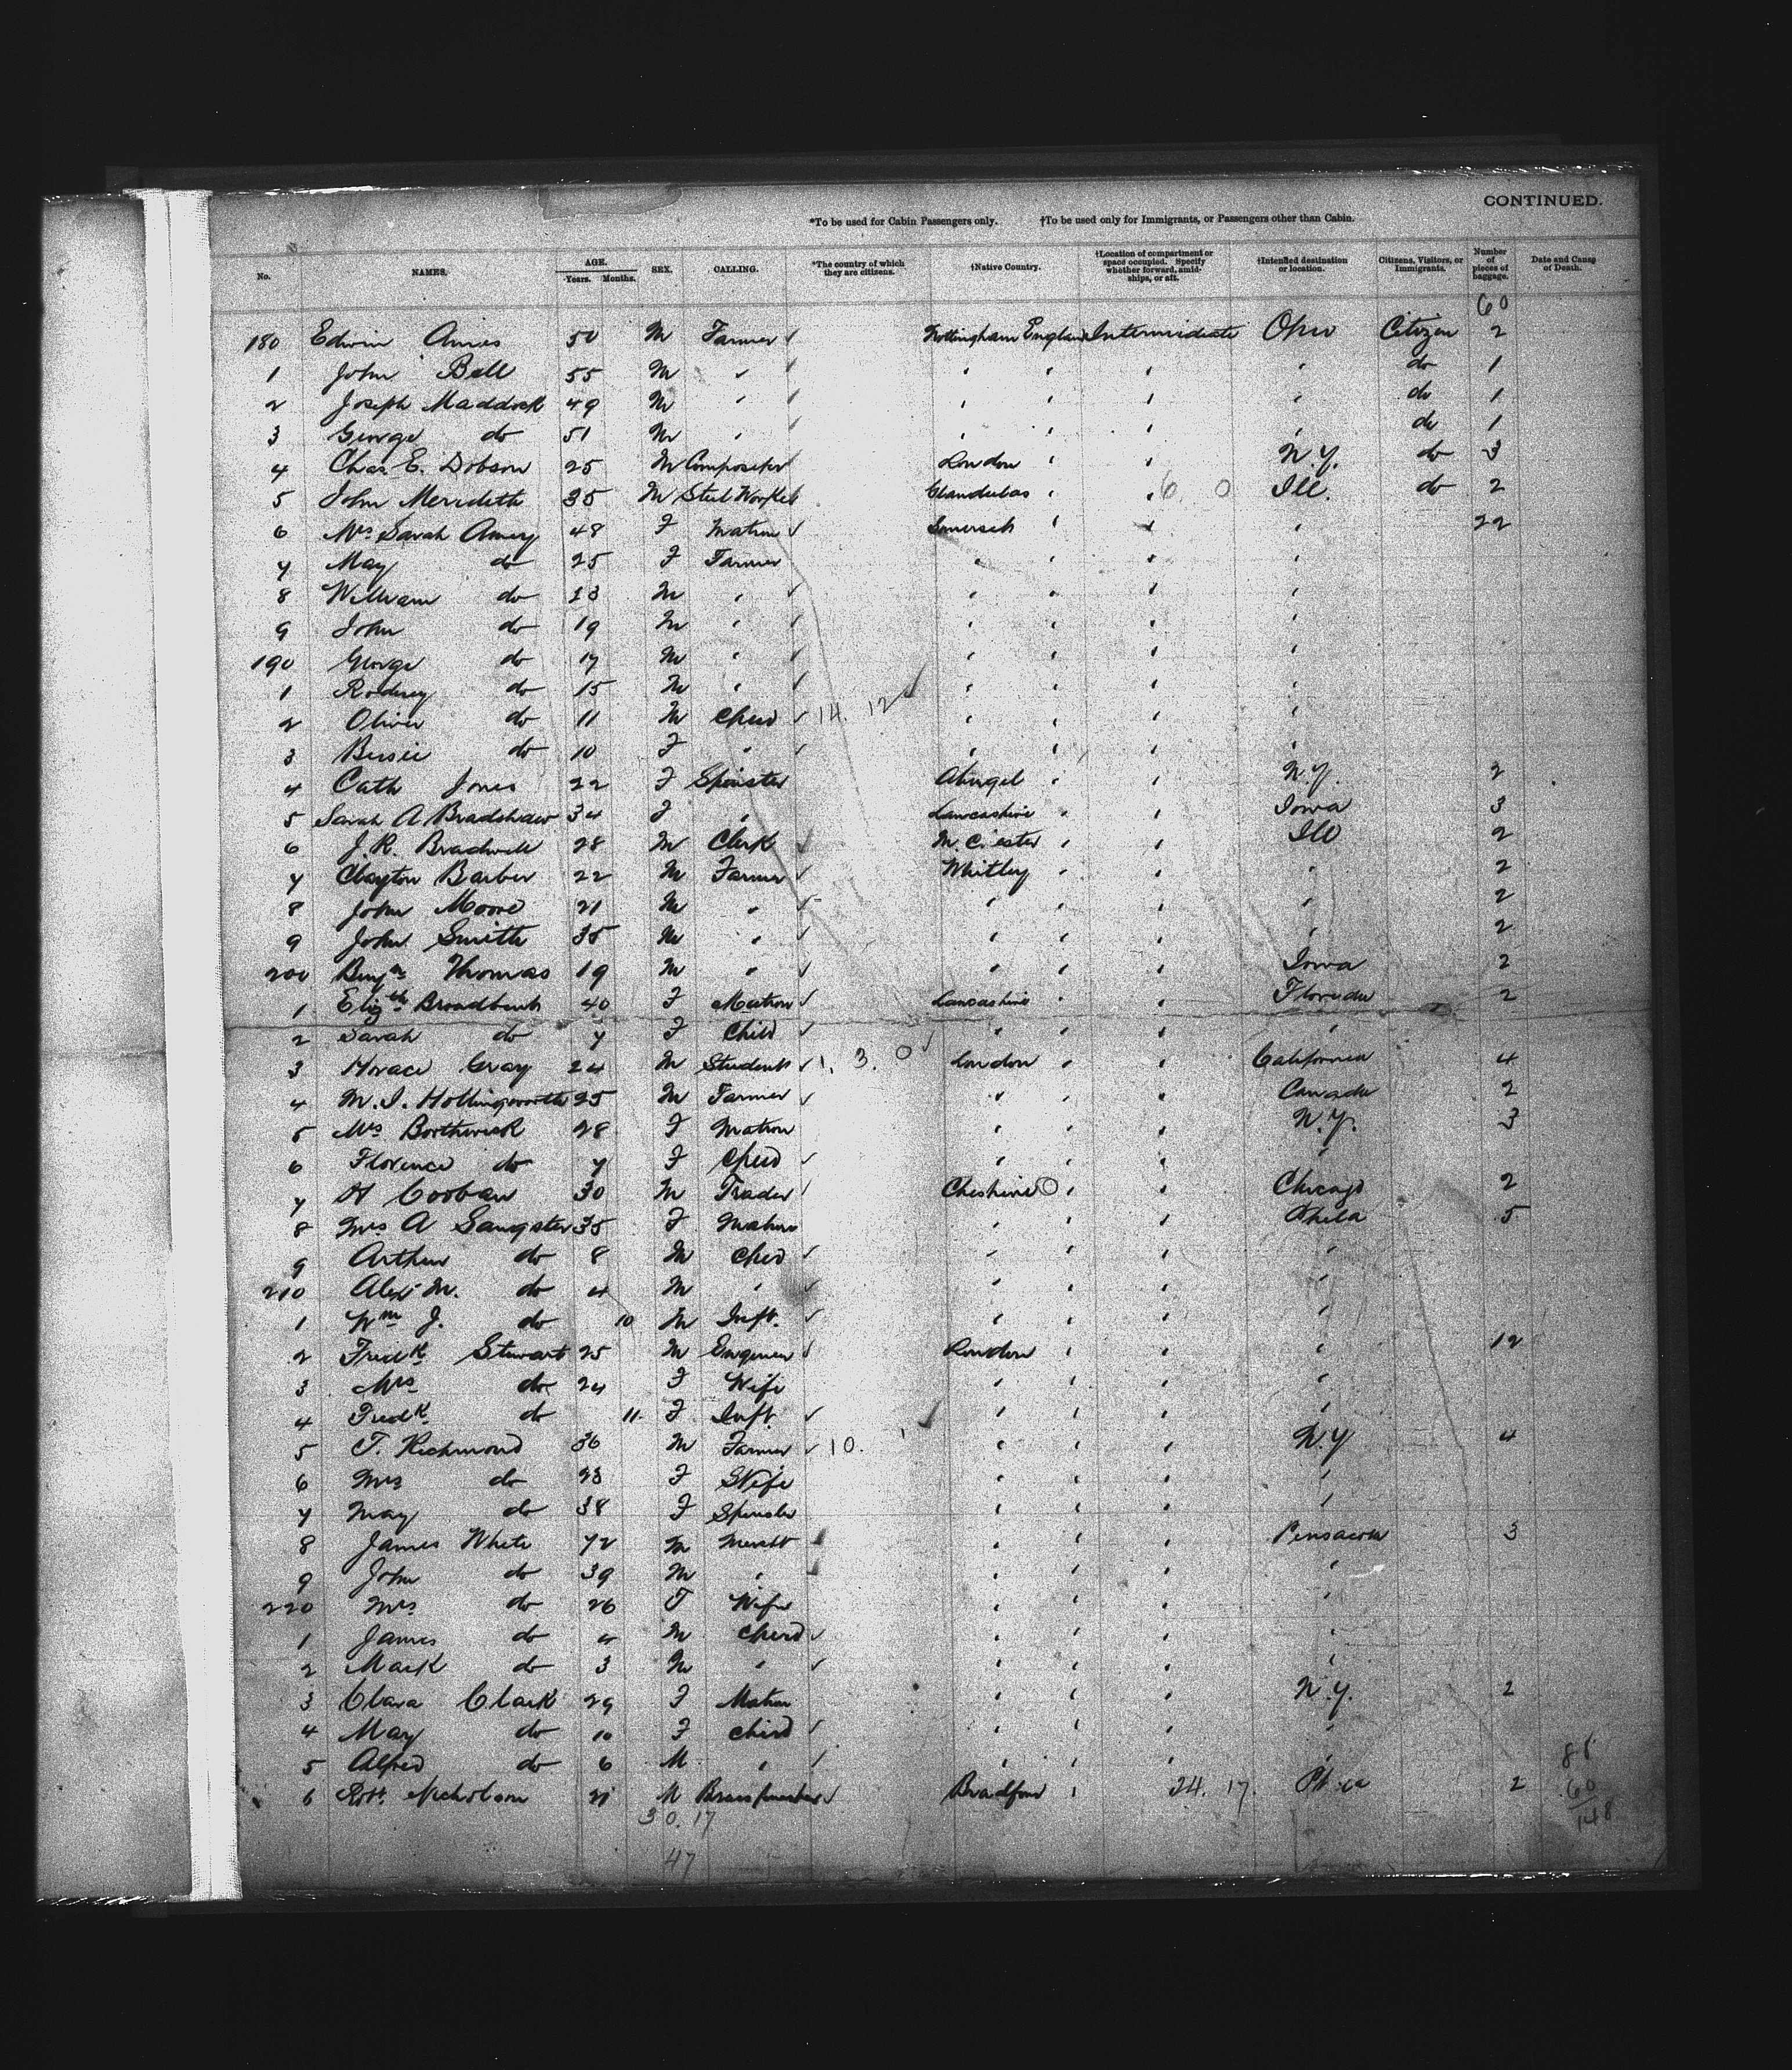 CONTINUED.
*To be used for Cabin Passengers only. †To be used only for Immigrants, or Passengers other than Cabin.
No. NAMES. AGE. Years. Months. SEX. CALLING. *The country of which they are citizens. †Native Country. †Location of compartment or space occupied. Specify whether forward, amidships, or aft. †Intended destination or location. Citizens, Visitors, or Immigrants. Number of pieces of baggage. Date and Cause of Death.
60
180 Edwin 50 M Farmer Nottingham England Intermediate Ohio Citizen 2
1 John Bell 55 M " " " " " do 1
2 Joseph Maddock 49 M " " " " " do 1
3 George do 51 M " " " " " do 1
4 Chas. E. Dobson 25 M Compositor London " " N.Y. do 3
5 John Meredith 35 M Steel Worker " " 6 0 Ill. do 2
6 Mrs Sarah Amery 48 F Matron Somerset " " " 22
7 May do 25 F Farmer " " " "
8 William do 23 M " " " " "
9 John do 19 M " " " " "
190 George do 17 M " " " " "
1 Rodney do 15 M " " " " "
2 Oliver do 11 M Child 14. 12 " " " "
3 Bessie do 10 F " " " " "
4 Cath Jones 22 F Spinster " " N.Y. 2
5 Sarah A Bradshaw 34 F " Lancashire " " Iowa 3
6 J.R. Bradwell 28 M Clerk M.C.ester " " Ill 2
7 Clayton Barber 22 M Farmer Whitley " " " 2
8 John Moore 21 M " " " " " 2
9 John Smith 35 M " " " " " 2
200 Benjn Thomas 19 M " " " " Iowa 2
1 Elizth Broadbent 40 F Matron Lancashire " " Florida 2
2 Sarah do 7 F Child " " " "
3 Horace Gray 24 M Student 1. 3. 0 London " " California 4
4 M.I. Hollingworth 25 M Farmer " " " Canada 2
5 Mrs Borthwick 28 F Matron " " " N.Y. 3
6 Florence do 7 F Child " " " "
7 H Cooban 30 M Trader Cheshire " " Chicago 2
8 Mrs A Sangster 35 F Matron " " " Phila 5
9 Arthur do 8 M Child " " " "
210 Alex M. do 4 M " " " " "
1 Wm J. do 10 M Inft. " " " "
2 Fredk Stewart 25 M Engineer London " " " 12
3 Mrs do 24 F Wife " " " "
4 Fredk do 11 F Inft. " " " "
5 T. Richmond 36 M Farmer 10. 1 " " " N.Y 4
6 Mrs do 28 F Wife " " " "
7 May do 38 F Spinster " " " "
8 James White 72 M Mercht " " " Pensacola 3
9 John do 39 M " " " " "
220 Mrs do 26 F Wife " " " "
1 James do 4 M Child " " " "
2 Mark do 3 M " " " " "
3 Clara Clark 29 F Matron " " " N.Y. 2
4 May do 10 F Child " " " "
5 Alfred do 6 M " " " " "
6 Robt. Nicholson 21 M Bradford " 24. 17. 2
30. 17
47
88
60
148